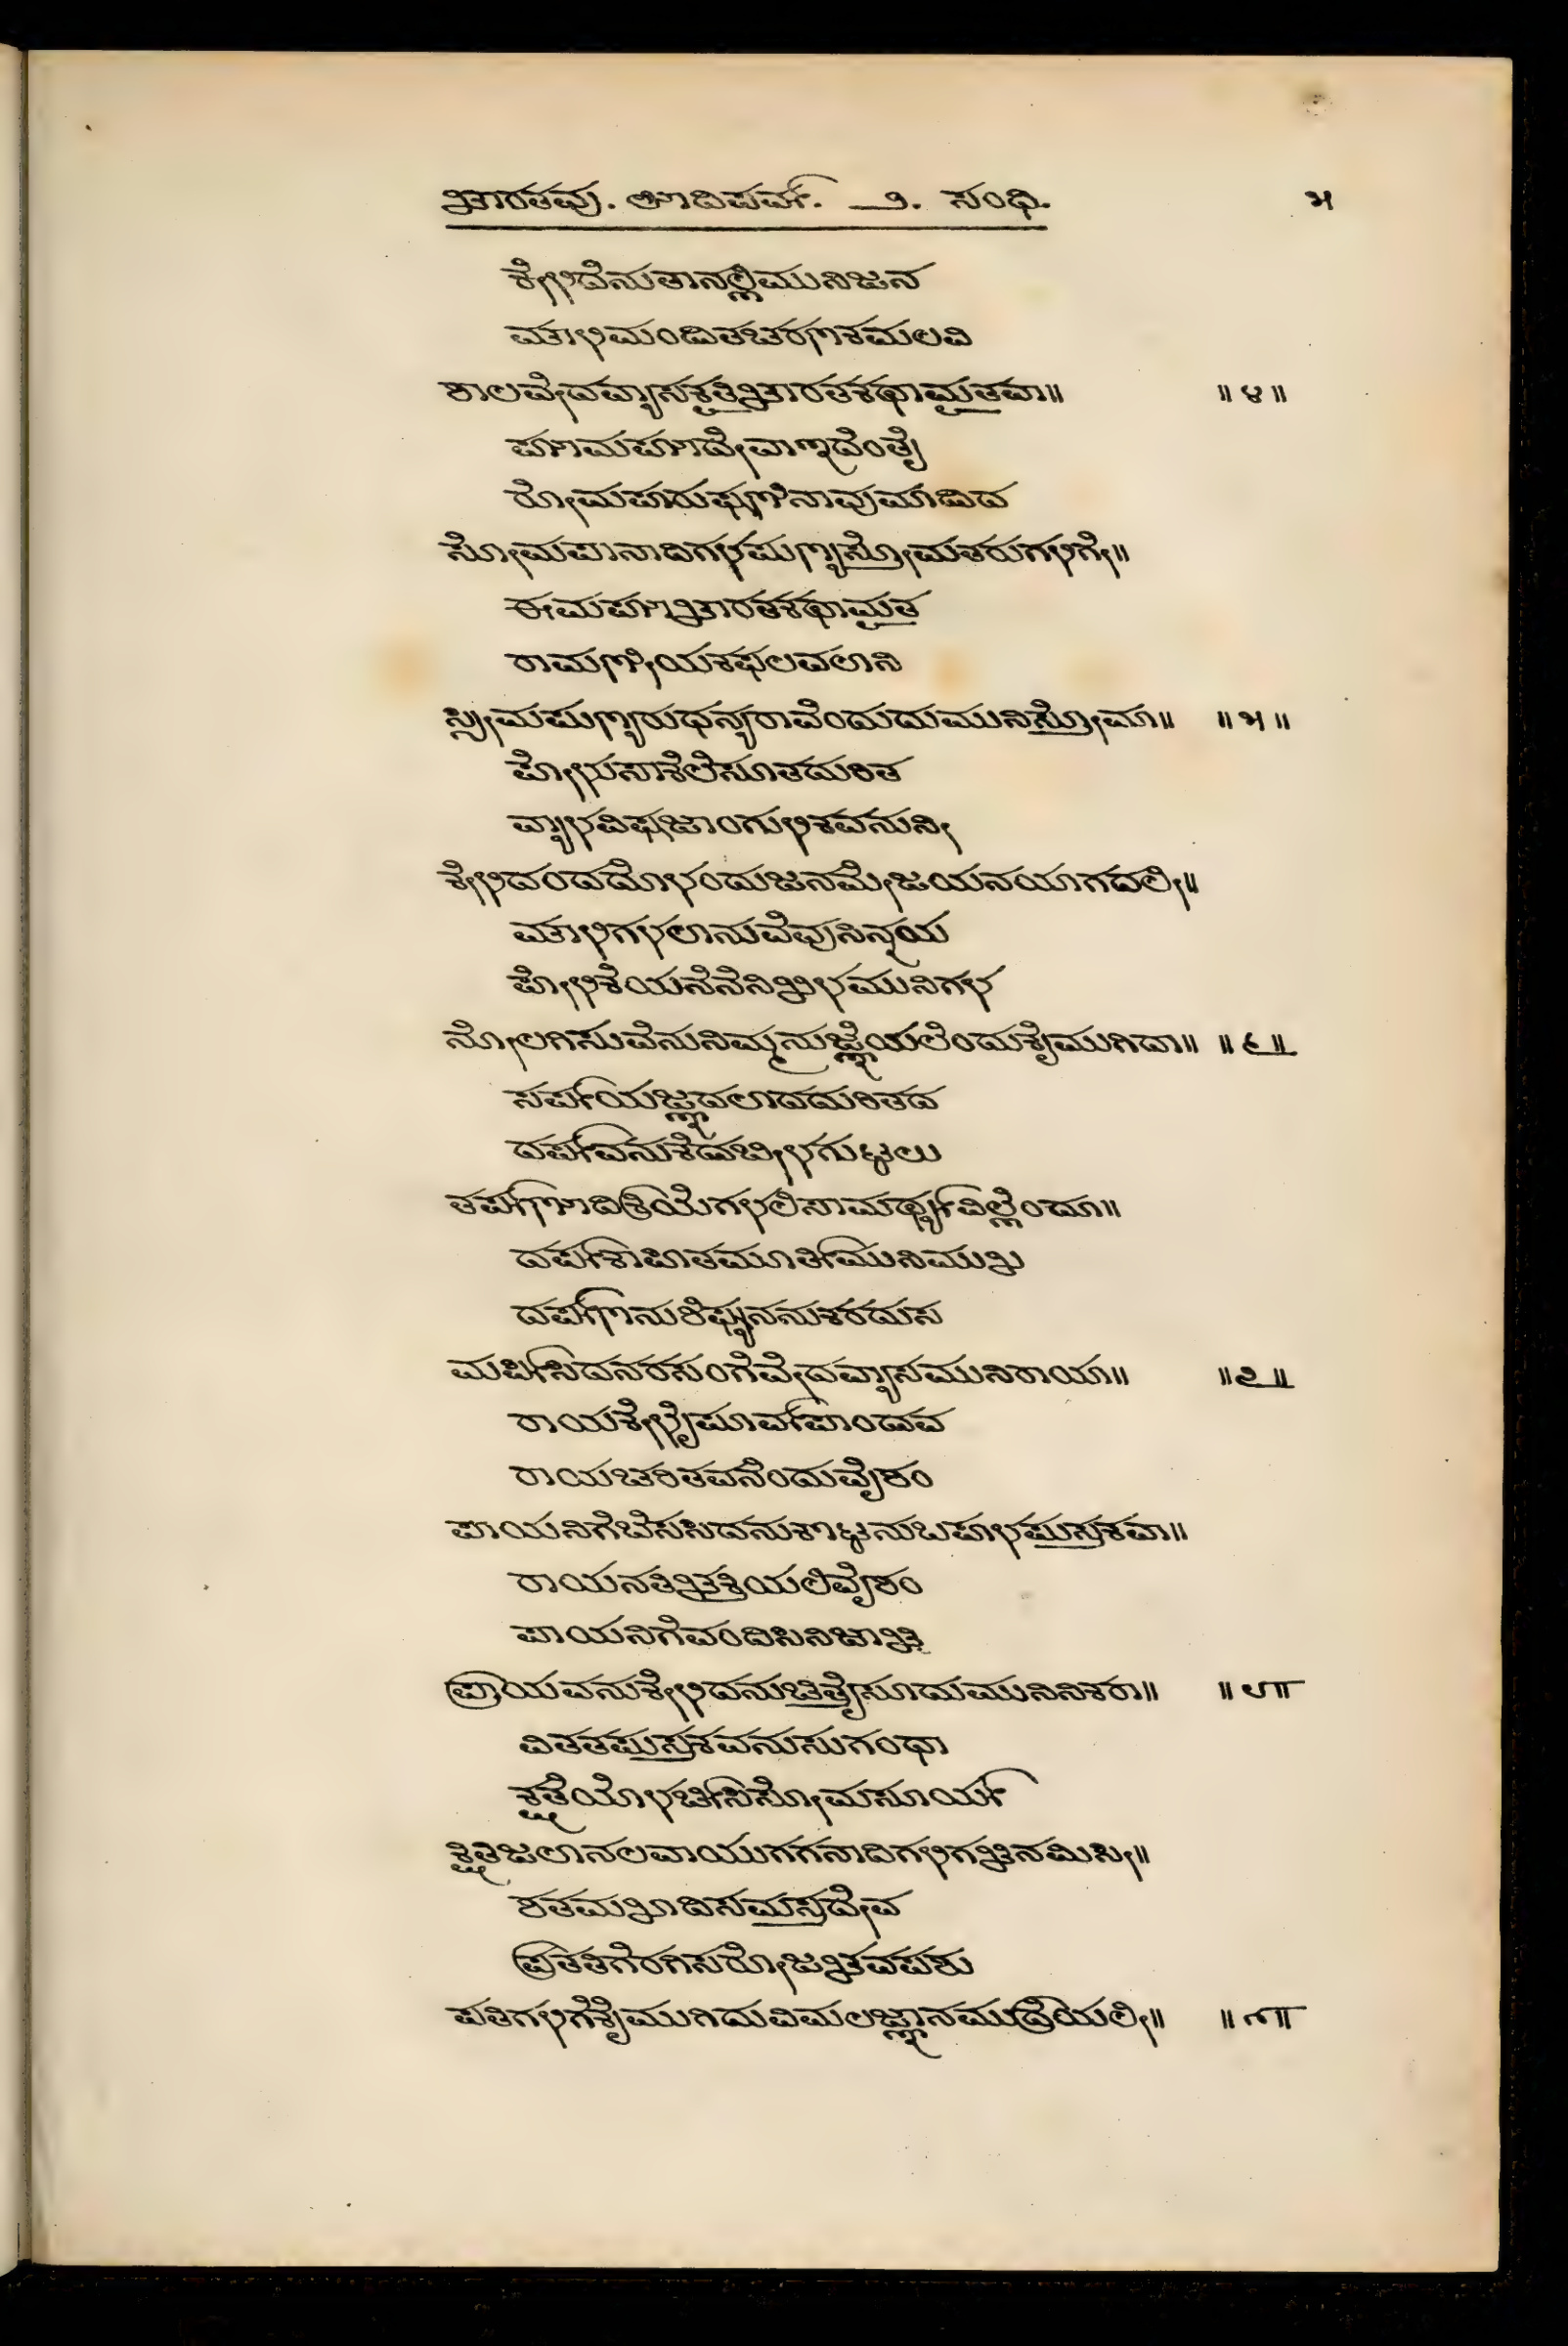 ಭಾರತವು. ಆದಿಪರ್ವ. ೨. ಸಂಧಿ. ೫
ಕೇಳಿದೆನುತಾನಲ್ಲಿಮುನಿಜನ
ಮೌಳಿಮಂಡಿತಚರಣಕಮಲವಿ
ಶಾಲವೇದವ್ಯಾಸಕೃತಿಭಾರತಕಥಾಮೃತವಾ॥ ॥೪॥
ಹಾಮಹಾದೇವಾಇದೆಂತೈ
ರೋಮಹರುಷಣಿನಾವುಮಾಡಿದ
ಸೋಮಪಾನಾದಿಗಳಪುಣ್ಯಸ್ತೋಮತರುಗಳಿಗೇ॥
ಈಮಹಾಭಾರತಕಥಾಮೃತ
ರಾಮಣೀಯಕಫಲವಲಾನಿ
ಸ್ಸೀಮಪುಣ್ಯರುಧನ್ಯರಾವೆಂದುದುಮುನಿಸ್ತೋಮಾ॥ ॥೫॥
ಹೇಳುಸಾಕೆಲೆಸೂತದುರಿತ
ವ್ಯಾಳವಿಷಜಾಂಗುಳಿಕವನುನೀ
ಕೇಳಿದಂದದೊಳಂದುಜನಮೇಜಯನಯಾಗದಲೀ॥
ಮೌಳಿಗಳಲಾನುವೆವುನಿನ್ನಯ
ಹೇಳಿಕೆಯನೆನೆನಿಖಿಳಮುನಿಗಳ
ನೋಲಗಿಸುವೆನುನಿಮ್ಮನುಜ್ಞೆಯಲೆಂದುಕೈಮುಗಿದಾ॥ ॥೬॥
ಸರ್ಪಯಜ್ಞದಲಾದದುರಿತದ
ದರ್ಪವನುಕೆಡಬೀಳಗುಟ್ಟಲು
ತರ್ಪಣಾದಿಕ್ರಿಯೆಗಳಲಿಸಾಮರ್ಥ್ಯವಿಲ್ಲೆಂದೂ॥
ದರ್ಪಕಾಹಿತಮೂರ್ತಿಮುನಿಮುಖ
ದರ್ಪಣನುಶಿಷ್ಯನನುಕರೆದುಸ
ಮರ್ಪಿಸಿದನರಸಂಗೆವೇದವ್ಯಾಸಮುನಿರಾಯಾ॥ ॥೭॥
ರಾಯಕೇಳೈಪೂರ್ವಪಾಂಡವ
ರಾಯಚರಿತವನೆಂದುವೈಶಂ
ಪಾಯನಿಗೆಬೆಸಸಿದನುಕೊಟ್ಟನುಬಹಳಪುಸ್ತಕವಾ॥
ರಾಯನತಿಭಕ್ತಿಯಲಿವೈಶಂ
ಪಾಯನಿಗೆವಂದಿಸಿನಿಜಾಭಿ
ಪ್ರಾಯವನುಕೇಳಿದನುಚಿತ್ತೈಸೂದುಮುನಿನಿಕರಾ॥ ॥೮॥
ವಿತತಪುಸ್ತಕವನುಸುಗಂಧಾ
ಕ್ಷತೆಯೊಳರ್ಚಿಸಿಸೋಮಸೂರ್ಯ
ಕ್ಷಿತಿಜಲಾನಲವಾಯುಗಗನಾದಿಗಳಿಗಭಿನಮಿಸೀ॥
ಶತಮಖಾದಿಸಮಸ್ತದೇವ
ಪ್ರತತಿಗೆರಗಿಸರೋಜಭವಪಶು
ಪತಿಗಳಿಗೆಕೈಮುಗಿದುವಿಮಲಜ್ಞಾನಮುದ್ರೆಯಲೀ॥ ॥೯॥